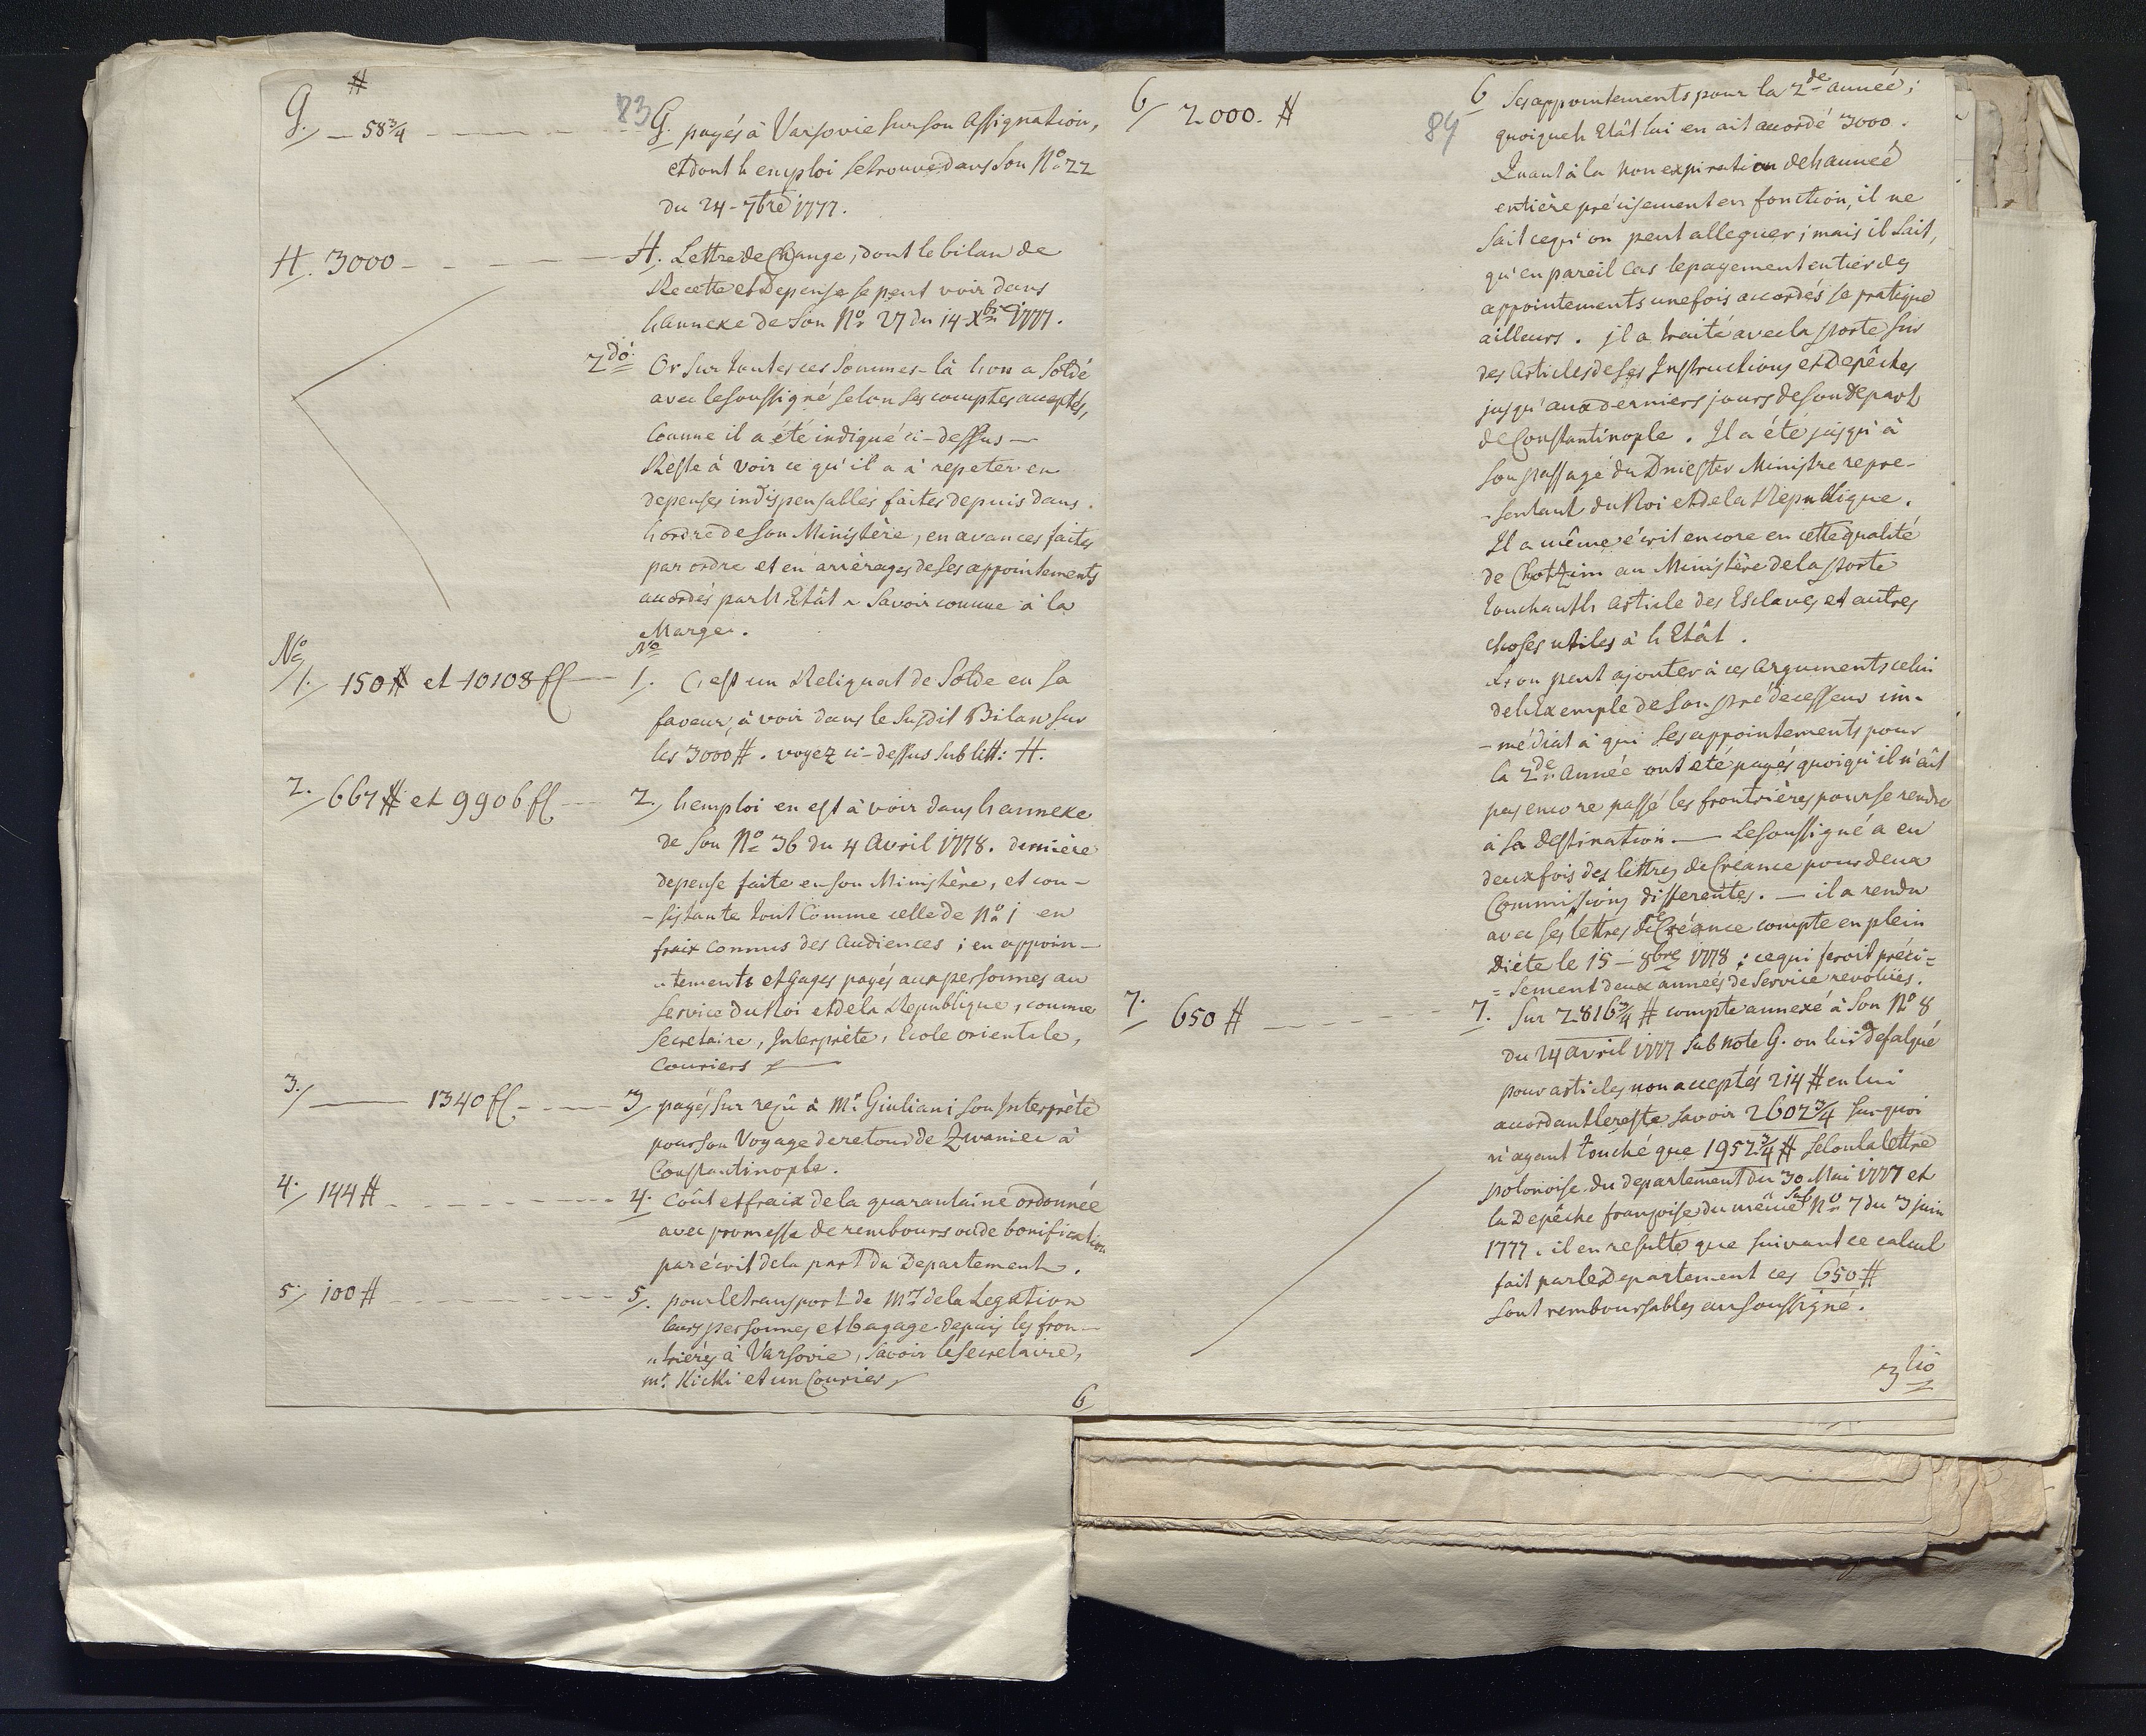 #
G./ — 58 3/4 - - - - 83 G. payés à Varsovie sur son Assignation,
et dont l'emploi se trouve dans son No 22
du 24 - 7bre 1777.
H. 3000 - - - H. Lettre de Change, dont le bilan de
Recette et Depense se peut voir dans
l'annexe de son No 27 du 14 Xbre 1777.
2do Or sur toutes ces sommes-là l'on a soldé
avec le soussigné selon ses comptes acceptés,
comme il a été indiqué ci-dessus —
Reste à voir ce qu'il a à repeter en
depenses indispensables faites depuis dans
l'ordre de son Ministère, en avances faites
par ordre et en arrièrages de ses appointements
accordés par l'Etât savoir comme à la
Marge.
No No
1./ 150 # et 10108 fl — 1. C'est un Reliquat de Solde en sa
faveur, à voir dans le susdit Bilan sur
les 3000 #. voyez ci-dessus sub litt: H.
2./ 667 # et 9906 fl - - 2./ l'emploi en est à voir dans l'annexe
de son No 36 du 4 Avril 1778. dernière
depense faite en son Ministère, et con-
-sistante tout comme celle de No 1 en
fraix connus des audiences; en appoin-
-tements et gages payés aux personnes au
service du Roi et de la Republique, comme
Secretaire, Interprète, Ecole orientale,
Couriers
3./ — 1340 fl - - - 3./ payés sur reçû à Mr. Giuliani son Interprète
pour son Voyage de retour de Zwaniec à
Constantinople.
4. 144 # - - - - 4. Coût et fraix de la quarantaine ordonnée
avec promesse de rembours ou de bonification
par écrit de la part du Departement.
5./ 100 # - - - - 5. pour le transport de Mrs de la Legation
leurs personnes et bagage depuis les fron-
-trières à Varsovie, savoir le Secretaire,
mr. Kicki et un Courier
6
6/ 2000. # 84 6 Ses appointements pour la 2de année;
quoique l'Etât lui en ait accordé 3000.
Quant à la non expiration de l'année
entière précisement en fonction, il ne
sait ce qu'on peut alleguer; mais il sait,
qu'en pareil cas le payement entier des
appointements une fois accordés se pratique
ailleurs. il a traité avec la Porte sur
des Articles de ses Instructions et Depêches
jusqu'aux derniers jours de son depart
de Constantinople. Il a été jusqu'à
son passage du Dniester Ministre repre-
-sentant du Roi et de la Republique.
Il a même écrit encore en cette qualité
de Chotzim au Ministère de la Porte
touchant l'article des Esclaves et autres
choses utiles à l'Etât.
L'on peut ajouter à ces arguments celui
de l'Exemple de son Prédecesseur im-
-médiat à qui ses appointements pour
la 2de Année ont été payés quoiqu'il n'eût
pas encore passé les frontrières pour se rendre
à sa destination. — Le soussigné a eu
deux fois des lettres de Créance pour deux
Commissions differentes. — il a rendu
avec ses lettres de Créance compte en plein
Diéte le 15 - 8bre 1778; ce qui seroit préci=
=sement deux années de service revolües.
7. 650 # - - - - 7. Sur 2816 3/4 # compte annexé à son No 8
du 24 avril 1777 sub note G. on lui a defalqué
pour articles non acceptés 214 # en lui
accordant le reste savoir 2602 3/4 surquoi
n'ayant touché que 1952 3/4 # selon la lettre
polonoise du departement du 30 Mai 1777 et
la Depêche françoise du même sub No 7 du 3 juin
1777. il en resulte que suivant ce calcul
fait par le Departement ces 650 #
sont remboursables au soussigné.
3tio